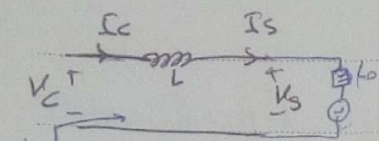 Ic Is
L
Vc + - + Vs -